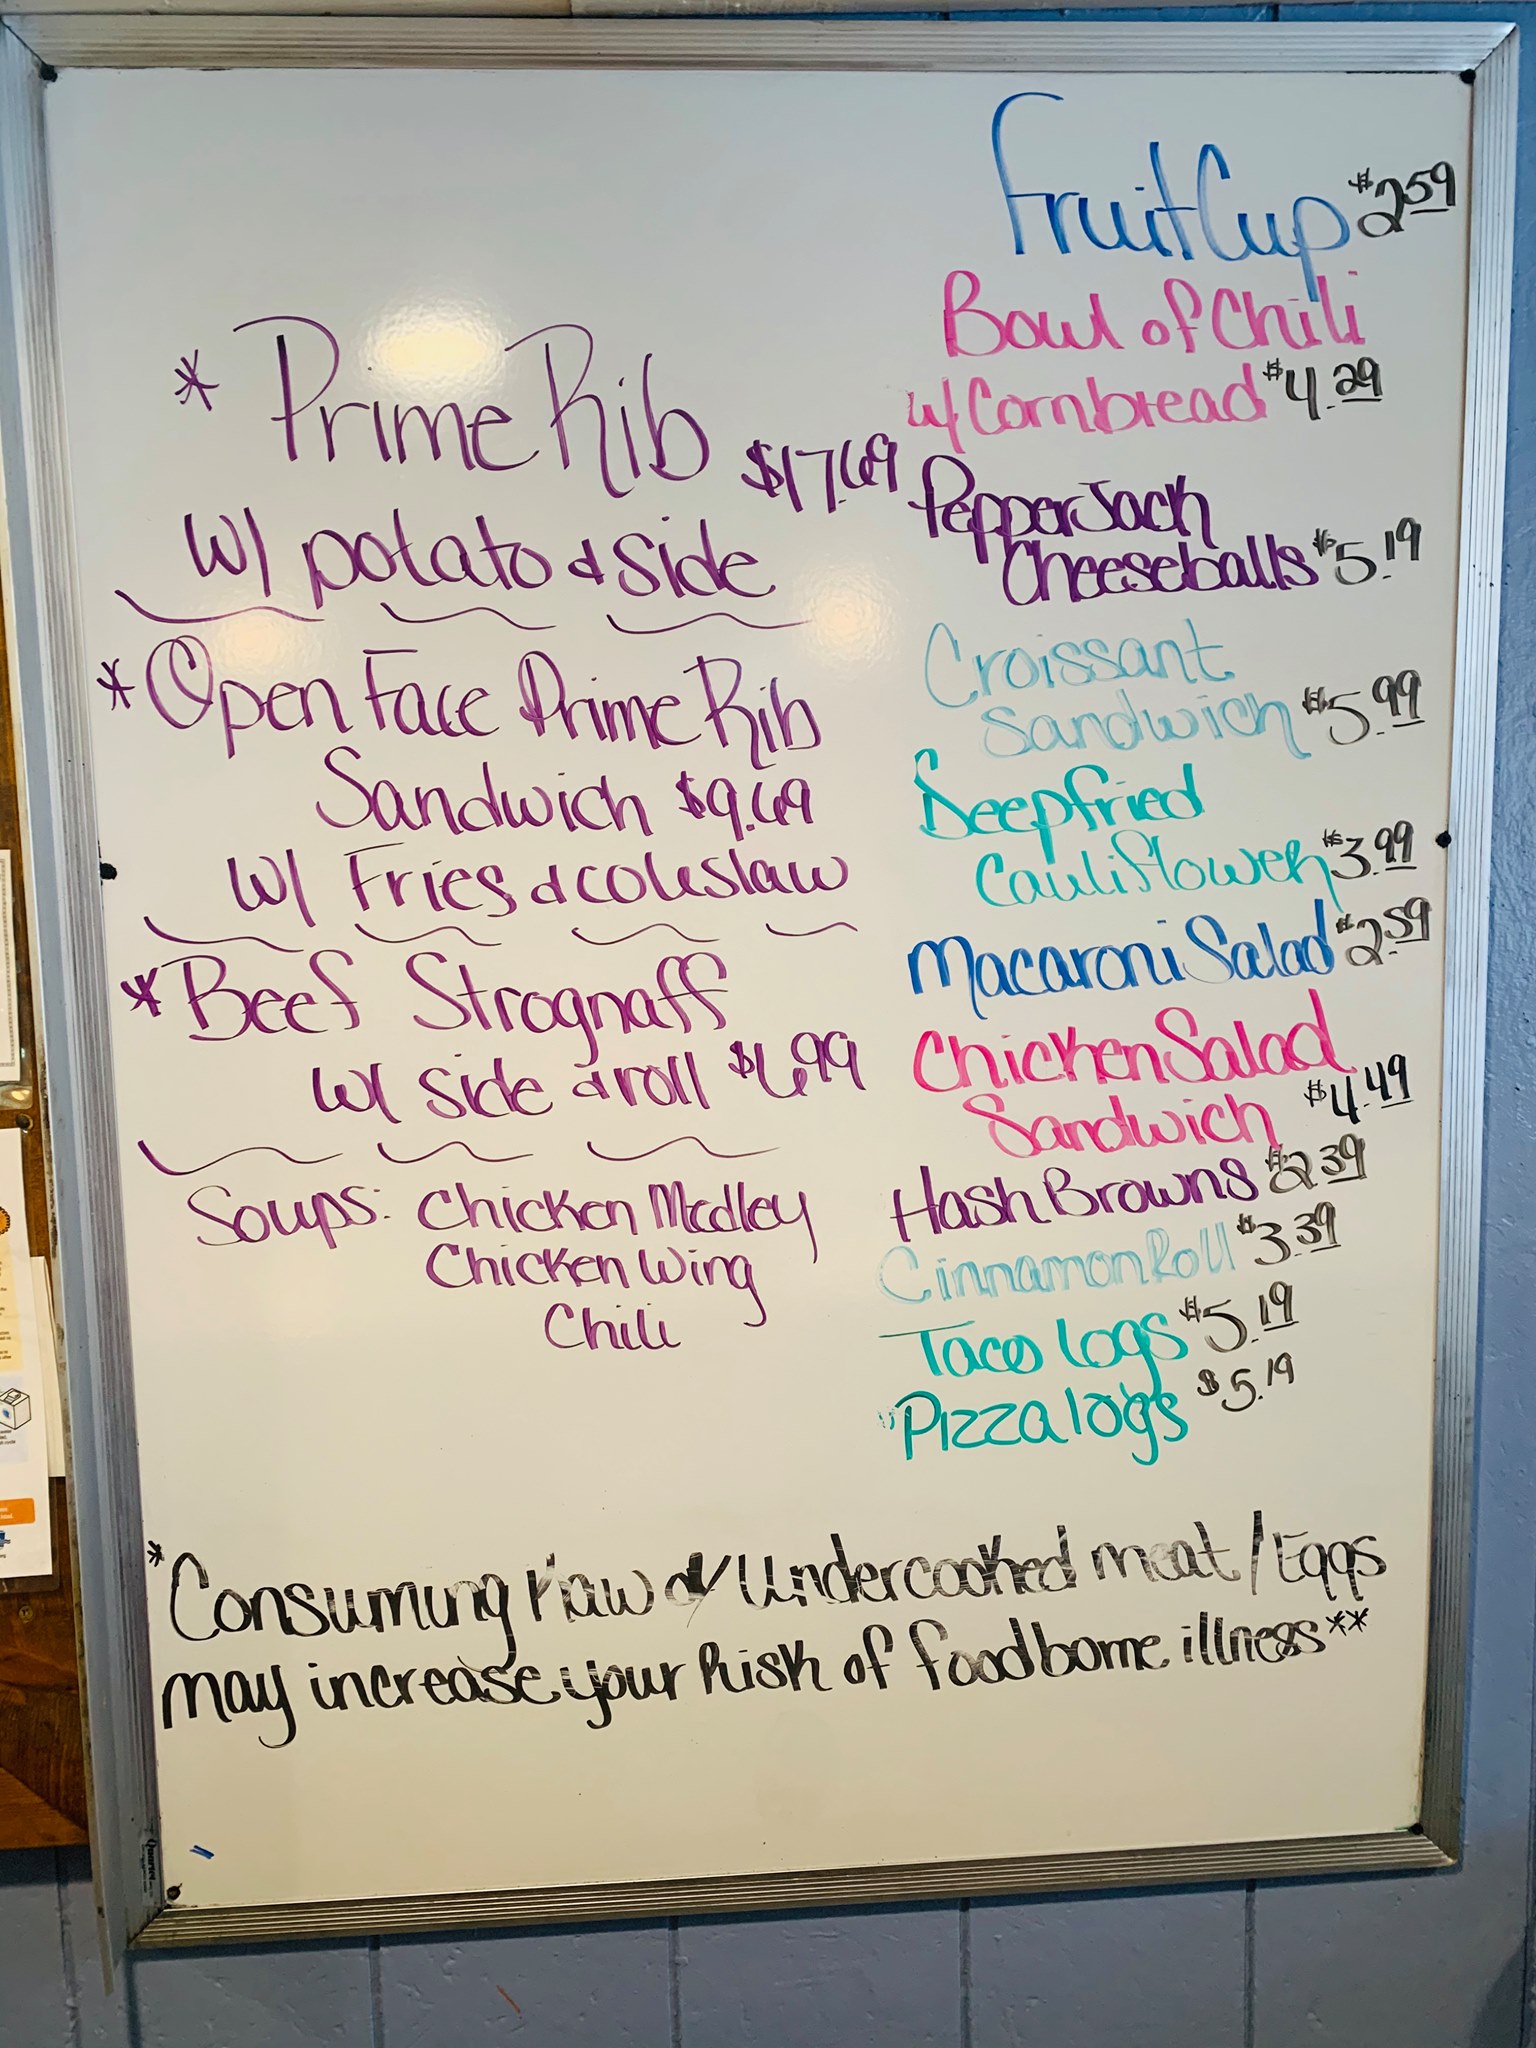 * Prime Rib $17.69
w/ potato & side
* Open Face Prime Rib
Sandwich $9.69
w/ Fries & coleslaw
* Beef Strognaff
w/ side & roll $6.99
Soups: Chicken Medley
Chicken Wing
Chili
Fruit Cup $2.59
Bowl of Chili
w/ Cornbread $4.29
PepperJack
Cheeseballs $5.19
Croissant
Sandwich $5.99
Deepfried
Cauliflower $3.99
Macaroni Salad $2.59
Chicken Salad
Sandwich $4.49
Hash Browns $2.39
Cinnamon Roll $3.39
Taco logs $5.19
Pizza logs $5.19
*Consuming Raw or Undercooked meat/Eggs
may increase your Risk of foodborne illness**
Quartet